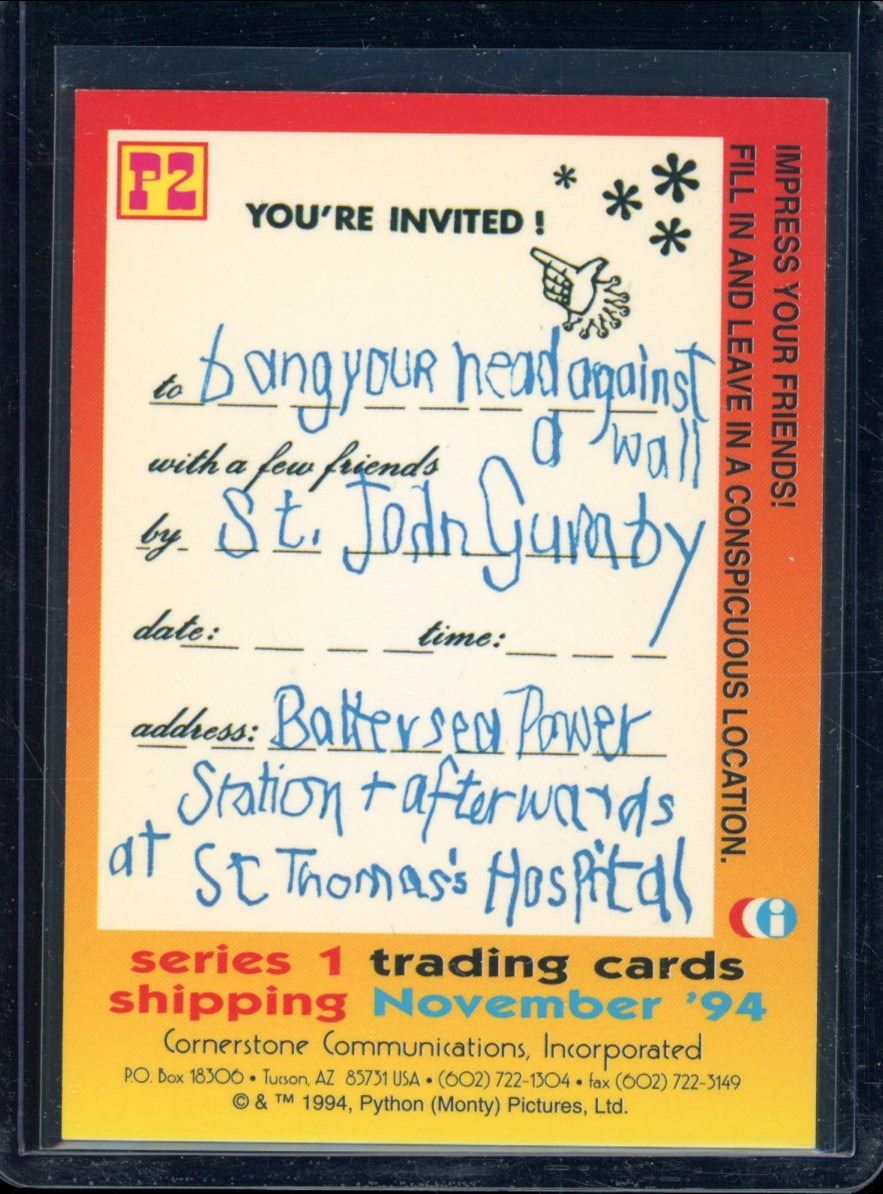 P2
YOU'RE INVITED !
to bang your head against
a wall
with a few friends
by St. John Gumby
date: time:
address: Battersea Power
Station + afterwards
at St Thomas's Hospital
IMPRESS YOUR FRIENDS!
FILL IN AND LEAVE IN A CONSPICUOUS LOCATION.
Ci
series 1 trading cards
shipping November '94
Cornerstone Communications, Incorporated
P.O. Box 18306 • Tucson, AZ 85731 USA • (602) 722-1304 • fax (602) 722-3149
© & ™ 1994, Python (Monty) Pictures, Ltd.